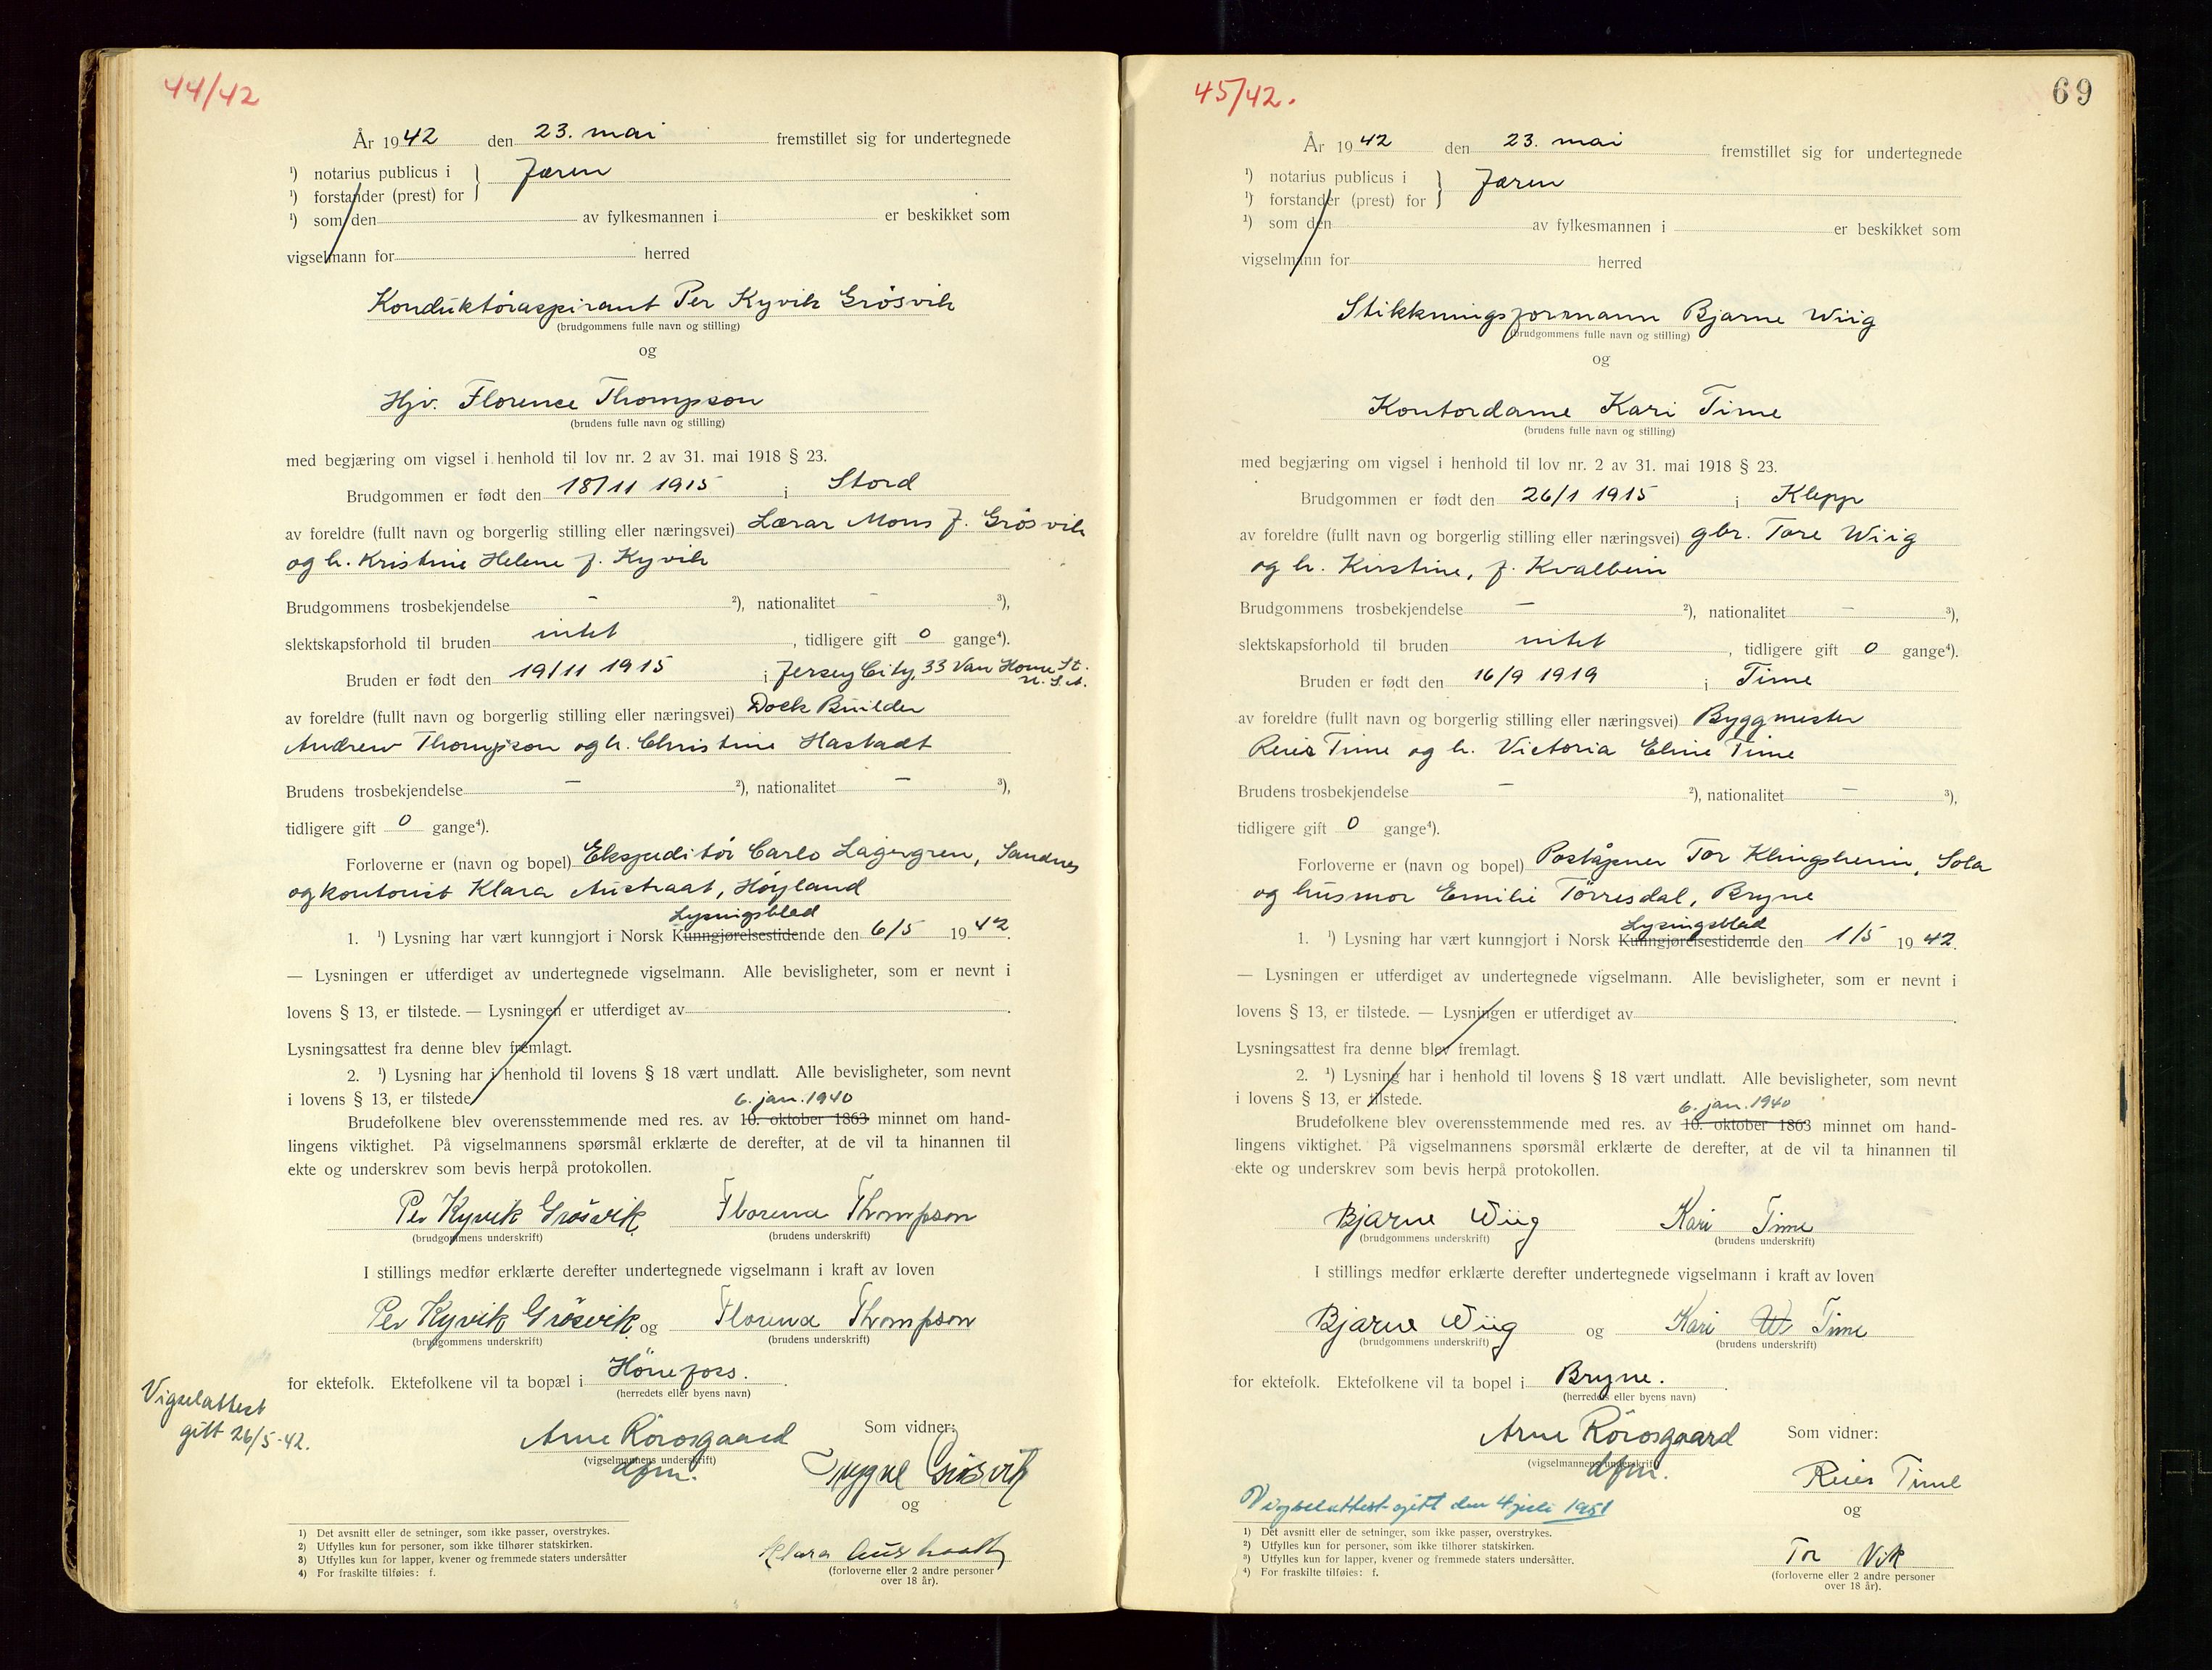 44/42
År 1942 den 23. mai fremstillet sig for undertegnede
¹) notarius publicus i } Jæren
¹) forstander (prest) for
¹) som den av fylkesmannen i er beskikket som
vigselmann for herred
Konduktøraspirant Per Kyvik Grösvik
(brudgommens fulle navn og stilling)
og
Hjv. Florence Thompson
(brudens fulle navn og stilling)
med begjæring om vigsel i henhold til lov nr. 2 av 31. mai 1918 § 23.
Brudgommen er født den 18/11 1915 i Stord
av foreldre (fullt navn og borgerlig stilling eller næringsvei) Lærar Mons J. Grösvik
og h. Kristine Helene f. Kyvik
Brudgommens trosbekjendelse - ²), nationalitet - ³),
slektskapsforhold til bruden intet, tidligere gift 0 gange⁴).
Bruden er født den 19/11 1915 i Jersey City, 33 Van Horne St.
U.S.A.
av foreldre (fullt navn og borgerlig stilling eller næringsvei) Dock Builder
Andrew Thompson og h. Christine Hastadt
Brudens trosbekjendelse - ²), nationalitet - ³),
tidligere gift 0 gange⁴).
Forloverne er (navn og bopel) Ekspeditör Carlo Lagergren, Sandnes
og kontorist Klara Austraat, Høyland
Lysningsblad
1. ¹) Lysning har vært kunngjort i Norsk Kunngjørelsestidende den 6/5 1942.
— Lysningen er utferdiget av undertegnede vigselmann. Alle bevisligheter, som er nevnt i
lovens § 13, er tilstede. — Lysningen er utferdiget av .
Lysningsattest fra denne blev fremlagt.
2. ¹) Lysning har i henhold til lovens § 18 vært undlatt. Alle bevisligheter, som nevnt
i lovens § 13, er tilstede.
6. jan. 1940
Brudefolkene blev overensstemmende med res. av 10. oktober 1863 minnet om hand-
lingens viktighet. På vigselmannens spørsmål erklærte de derefter, at de vil ta hinannen til
ekte og underskrev som bevis herpå protokollen.
Per Kyvik Grösvik Florence Thompson
(brudgommens underskrift) (brudens underskrift)
I stillings medfør erklærte derefter undertegnede vigselmann i kraft av loven
Per Kyvik Grösvik og Florence Thompson
(brudgommens underskrift) (brudens underskrift)
for ektefolk. Ektefolkene vil ta bopæl i Hönefoss.
(herredets eller byens navn)
Vigselattest
gitt 26/5-42.
Arne Rörosgaard
(vigselmannens underskrift)
dfm.
Som vidner:
Trygve Grösvik
og
Klara Austraatt
(forloverne eller 2 andre personer
over 18 år).
1) Det avsnitt eller de setninger, som ikke passer, overstrykes.
2) Utfylles kun for personer, som ikke tilhører statskirken.
3) Utfylles kun for lapper, kvener og fremmede staters undersåtter
4) For fraskilte tilføies: f.
45/42.
69
År 1942 den 23. mai fremstillet sig for undertegnede
¹) notarius publicus i } Jæren
¹) forstander (prest) for
¹) som den av fylkesmannen i er beskikket som
vigselmann for herred
Stikkningsformann Bjarne Wiig
(brudgommens fulle navn og stilling)
og
Kontordame Kari Time
(brudens fulle navn og stilling)
med begjæring om vigsel i henhold til lov nr. 2 av 31. mai 1918 § 23.
Brudgommen er født den 26/1 1915 i Klepp
av foreldre (fullt navn og borgerlig stilling eller næringsvei) gbr. Tore Wiig
og h. Kirstine, f. Kvalbein
Brudgommens trosbekjendelse — ²), nationalitet — ³),
slektskapsforhold til bruden intet, tidligere gift 0 gange⁴).
Bruden er født den 16/9 1919 i Time
av foreldre (fullt navn og borgerlig stilling eller næringsvei) Byggmester
Reier Time og h. Victoria Eline Time
Brudens trosbekjendelse — ²), nationalitet — ³),
tidligere gift 0 gange⁴).
Forloverne er (navn og bopel) Poståpner Tor Klingsheim, Sola
og husmor Emilie Törresdal, Bryne
Lysningsblad
1. ¹) Lysning har vært kunngjort i Norsk Kunngjørelsestidende den 1/5 1942.
— Lysningen er utferdiget av undertegnede vigselmann. Alle bevisligheter, som er nevnt i
lovens § 13, er tilstede. — Lysningen er utferdiget av .
Lysningsattest fra denne blev fremlagt.
2. ¹) Lysning har i henhold til lovens § 18 vært undlatt. Alle bevisligheter, som nevnt
i lovens § 13, er tilstede.
6. jan. 1940
Brudefolkene blev overensstemmende med res. av 10. oktober 1863 minnet om hand-
lingens viktighet. På vigselmannens spørsmål erklærte de derefter, at de vil ta hinannen til
ekte og underskrev som bevis herpå protokollen.
Bjarne Wiig Kari Time
(brudgommens underskrift) (brudens underskrift)
I stillings medfør erklærte derefter undertegnede vigselmann i kraft av loven
Bjarne Wiig og Kari W Time
(brudgommens underskrift) (brudens underskrift)
for ektefolk. Ektefolkene vil ta bopel i Bryne.
(herredets eller byens navn)
Arne Rörosgaard
(vigselmannens underskrift)
dfm.
Som vidner:
Reier Time
og
Tor Vik
(forloverne eller 2 andre personer
over 18 år).
Vigselattest gitt den 4 juli 1951
1) Det avsnitt eller de setninger, som ikke passer, overstrykes.
²) Utfylles kun for personer, som ikke tilhører statskirken.
³) Utfylles kun for lapper, kvener og fremmede staters undersåtter.
⁴) For fraskilte tilføies: f.